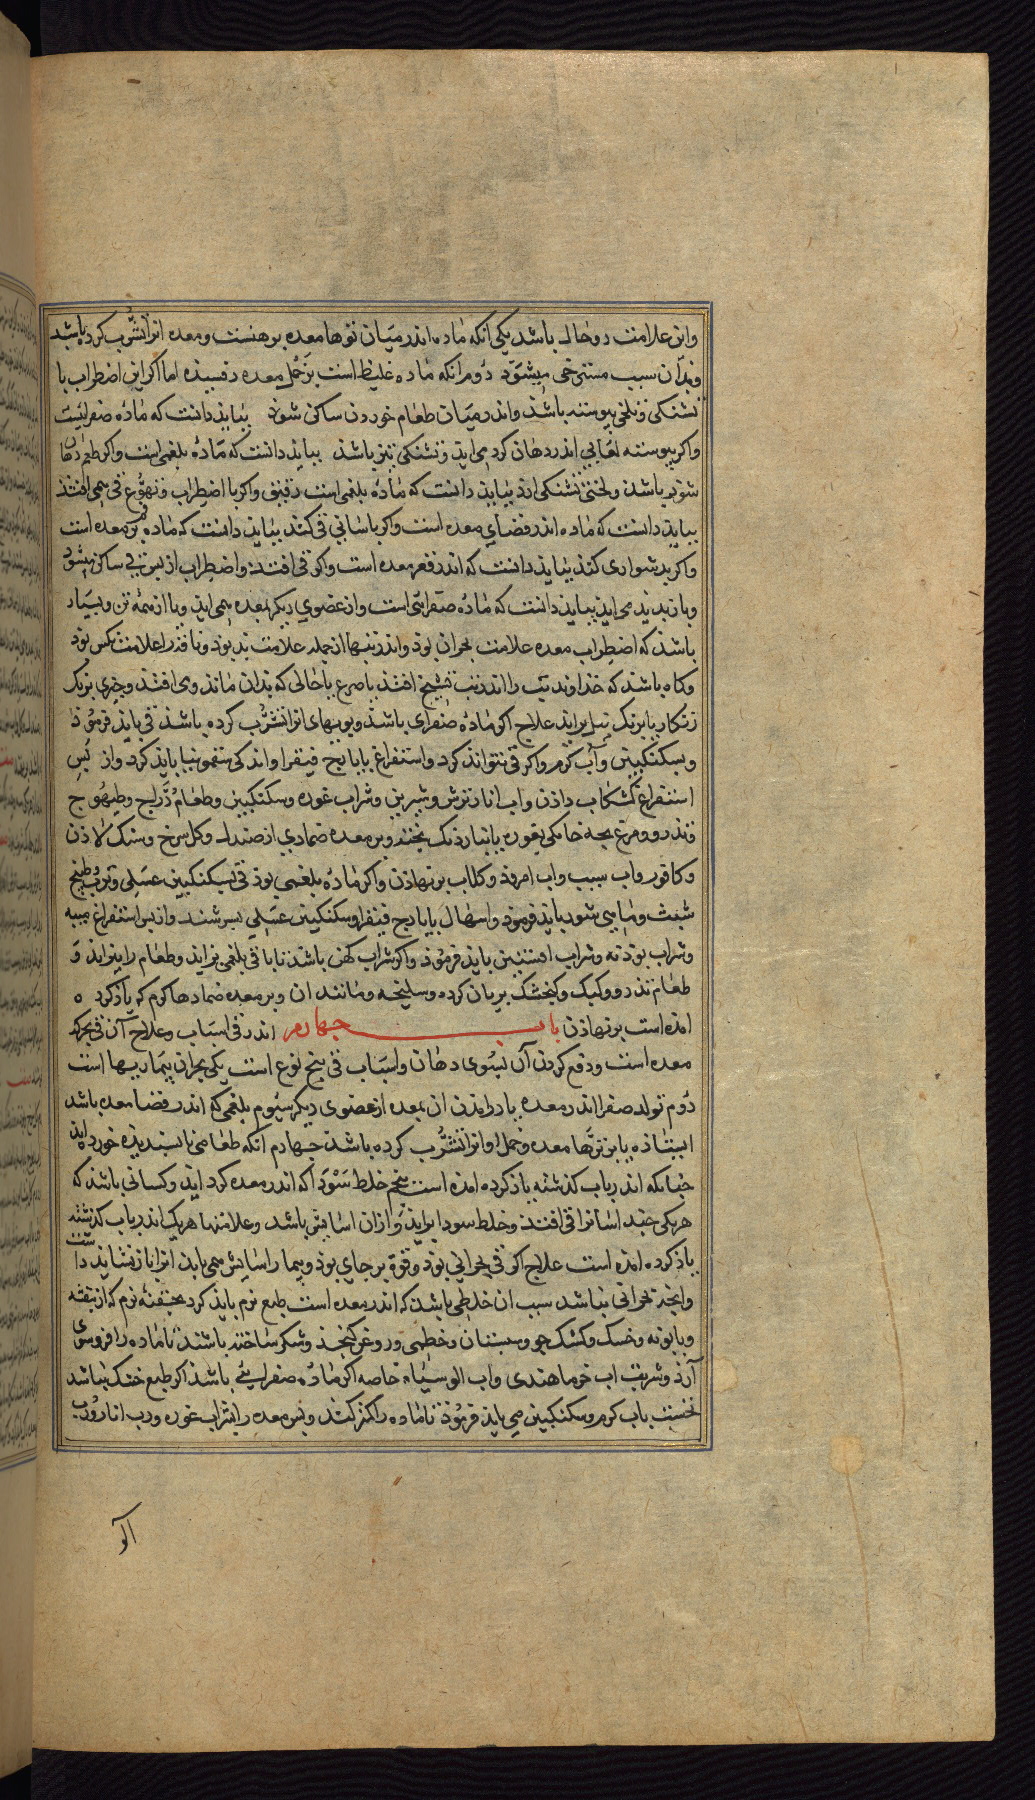 واین علامت دو حال باشد یکی انکه ماده اندر میان توها معده بر هنست و معده انرا تشرب کرده باشد
وبدان سبب مسترخی میشود دوم انکه ماده غلیظ است بر خمل معده دفسیده اما اکر این اضطراب با
تشنکی و تلخی پیوسته باشد واندر میان طعام خوردن ساکن شود بباید دانست که ماده صفرائیست
واکر پیوسته لعابی اندر دهان کرد می اید وتشنکی نیز باشد بباید دانست که ماده بلغمی است واکر طعم دهان
شور باشد ولختی تشنکی ارد بباید دانست که ماده بلغمی است رقیق واکر با اضطراب وتهوع قی همی افتد
بباید دانست که ماده اندر فضای معده است واکر باسانی قی کند بباید دانست که ماده بر فم معده است
واکر بدشواری کند بباید دانست که اندر قعر معده است واکر قی افتد واضطراب از پس قی ساکن میشود
وباز بدید می اید بباید دانست که ماده صفرائی است واز عضوی دیکر بمعده همی اید ویا از همه تن وبسیار
باشد که اضطراب معده علامت بحران بود واندر تبها از جمله علامت بد بود وناقه را علامت نکس بود
وکاه باشد که خداوند تب را اندر تب تشنج افتد یا صرع یا حالی که بدان ماند وقی افتد وچیزی برنک
زنکار یا برنک نیل براید علاج اکر ماده صفرای باشد وتوهای انرا تشرب کرده باشد قی باید فرمود
وبسکنکبین واب کرم واکر قی نتواند کرد واستفراغ بایارج فیقرا واندکی سقمونیا باید کرد واز پس
استفراغ کشکاب دادن واب انار ترش وشیرین وشراب غوره وسکنکبین وطعام دراج وطیهوج
وتذرو ومرغ بچه خانکی بغوره یا بنار دنک پخته وبر معده ضمادی از صندل وکل سرخ وسک ولادن
وکافور واب سیب واب امرود وکلاب بر نهادن واکر ماده بلغمی بود قی بسکنکبین عسلی وترب وطبیخ
شبث وماهی شور باید فرمود واسهال بایارج فیقرا وسکنکبین عسلی بسرشند واز پس استفراغ میبه
وشراب پودنه وشراب افسنتین باید فرمود واکر شراب کهن باشد تا باقی بلغمی بزاید وطعام را بپزاند و
طعام تذرو وکبک وکنجشک بریان کرده وسلیخه ومانند ان وبر معده ضمادها کرم که یاد کرده
امده است بر نهادن باب چهارم اندر قی اسباب وعلاج آن قی حرکه
معده است ودفع کردن آن بسوی دهان واسباب قی پنج نوع است یکی بحران بیماریها است
دوم تولد صفرا اندر معده یا درامدن ان بمعده از عضوی دیکر سیوم بلغمی که اندر فضا معده باشد
ایستاده یا بر توها معده وخمل او انرا تشرب کرده باشد چهارم انکه طعامی ناپسندیده خورده اید
چنانکه اندر باب کذشته یاد کرده امده است پنجم خلط سودا که اندر معده کرد اید وکسانی باشند که
هر یکی چند اشانرا قی افتد وخلط سودا براید واز ان اسایش باشد وعلامتها هر یک اندر باب کذشته
یاد کرده امده است علاج اکر قی بحرانی بود وقوة بر جای بود وبیمار راسایش همی یابد انرا باز نشاید داشت
وانچه بحرانی نباشد سبب ان خلطی باشد که اندر معده است طبع نرم باید کرد بحقنه نرم که از بنفشه
وبابونه وخسک وکشک جو وسبستان وخطمی وروغن کنجد وشکر ساخته باشند تا ماده را فروسوی
آرد وشربت اب خرما هندی واب الو سیاه خاصه اکر ماده صفرایی باشد اکر طبع خشک نباشد
نخست باب کرم وسکنکبین قی باید فرمود تا ماده را کمتر کند وپس معده را بشراب غوره ورب انار ورب
الو